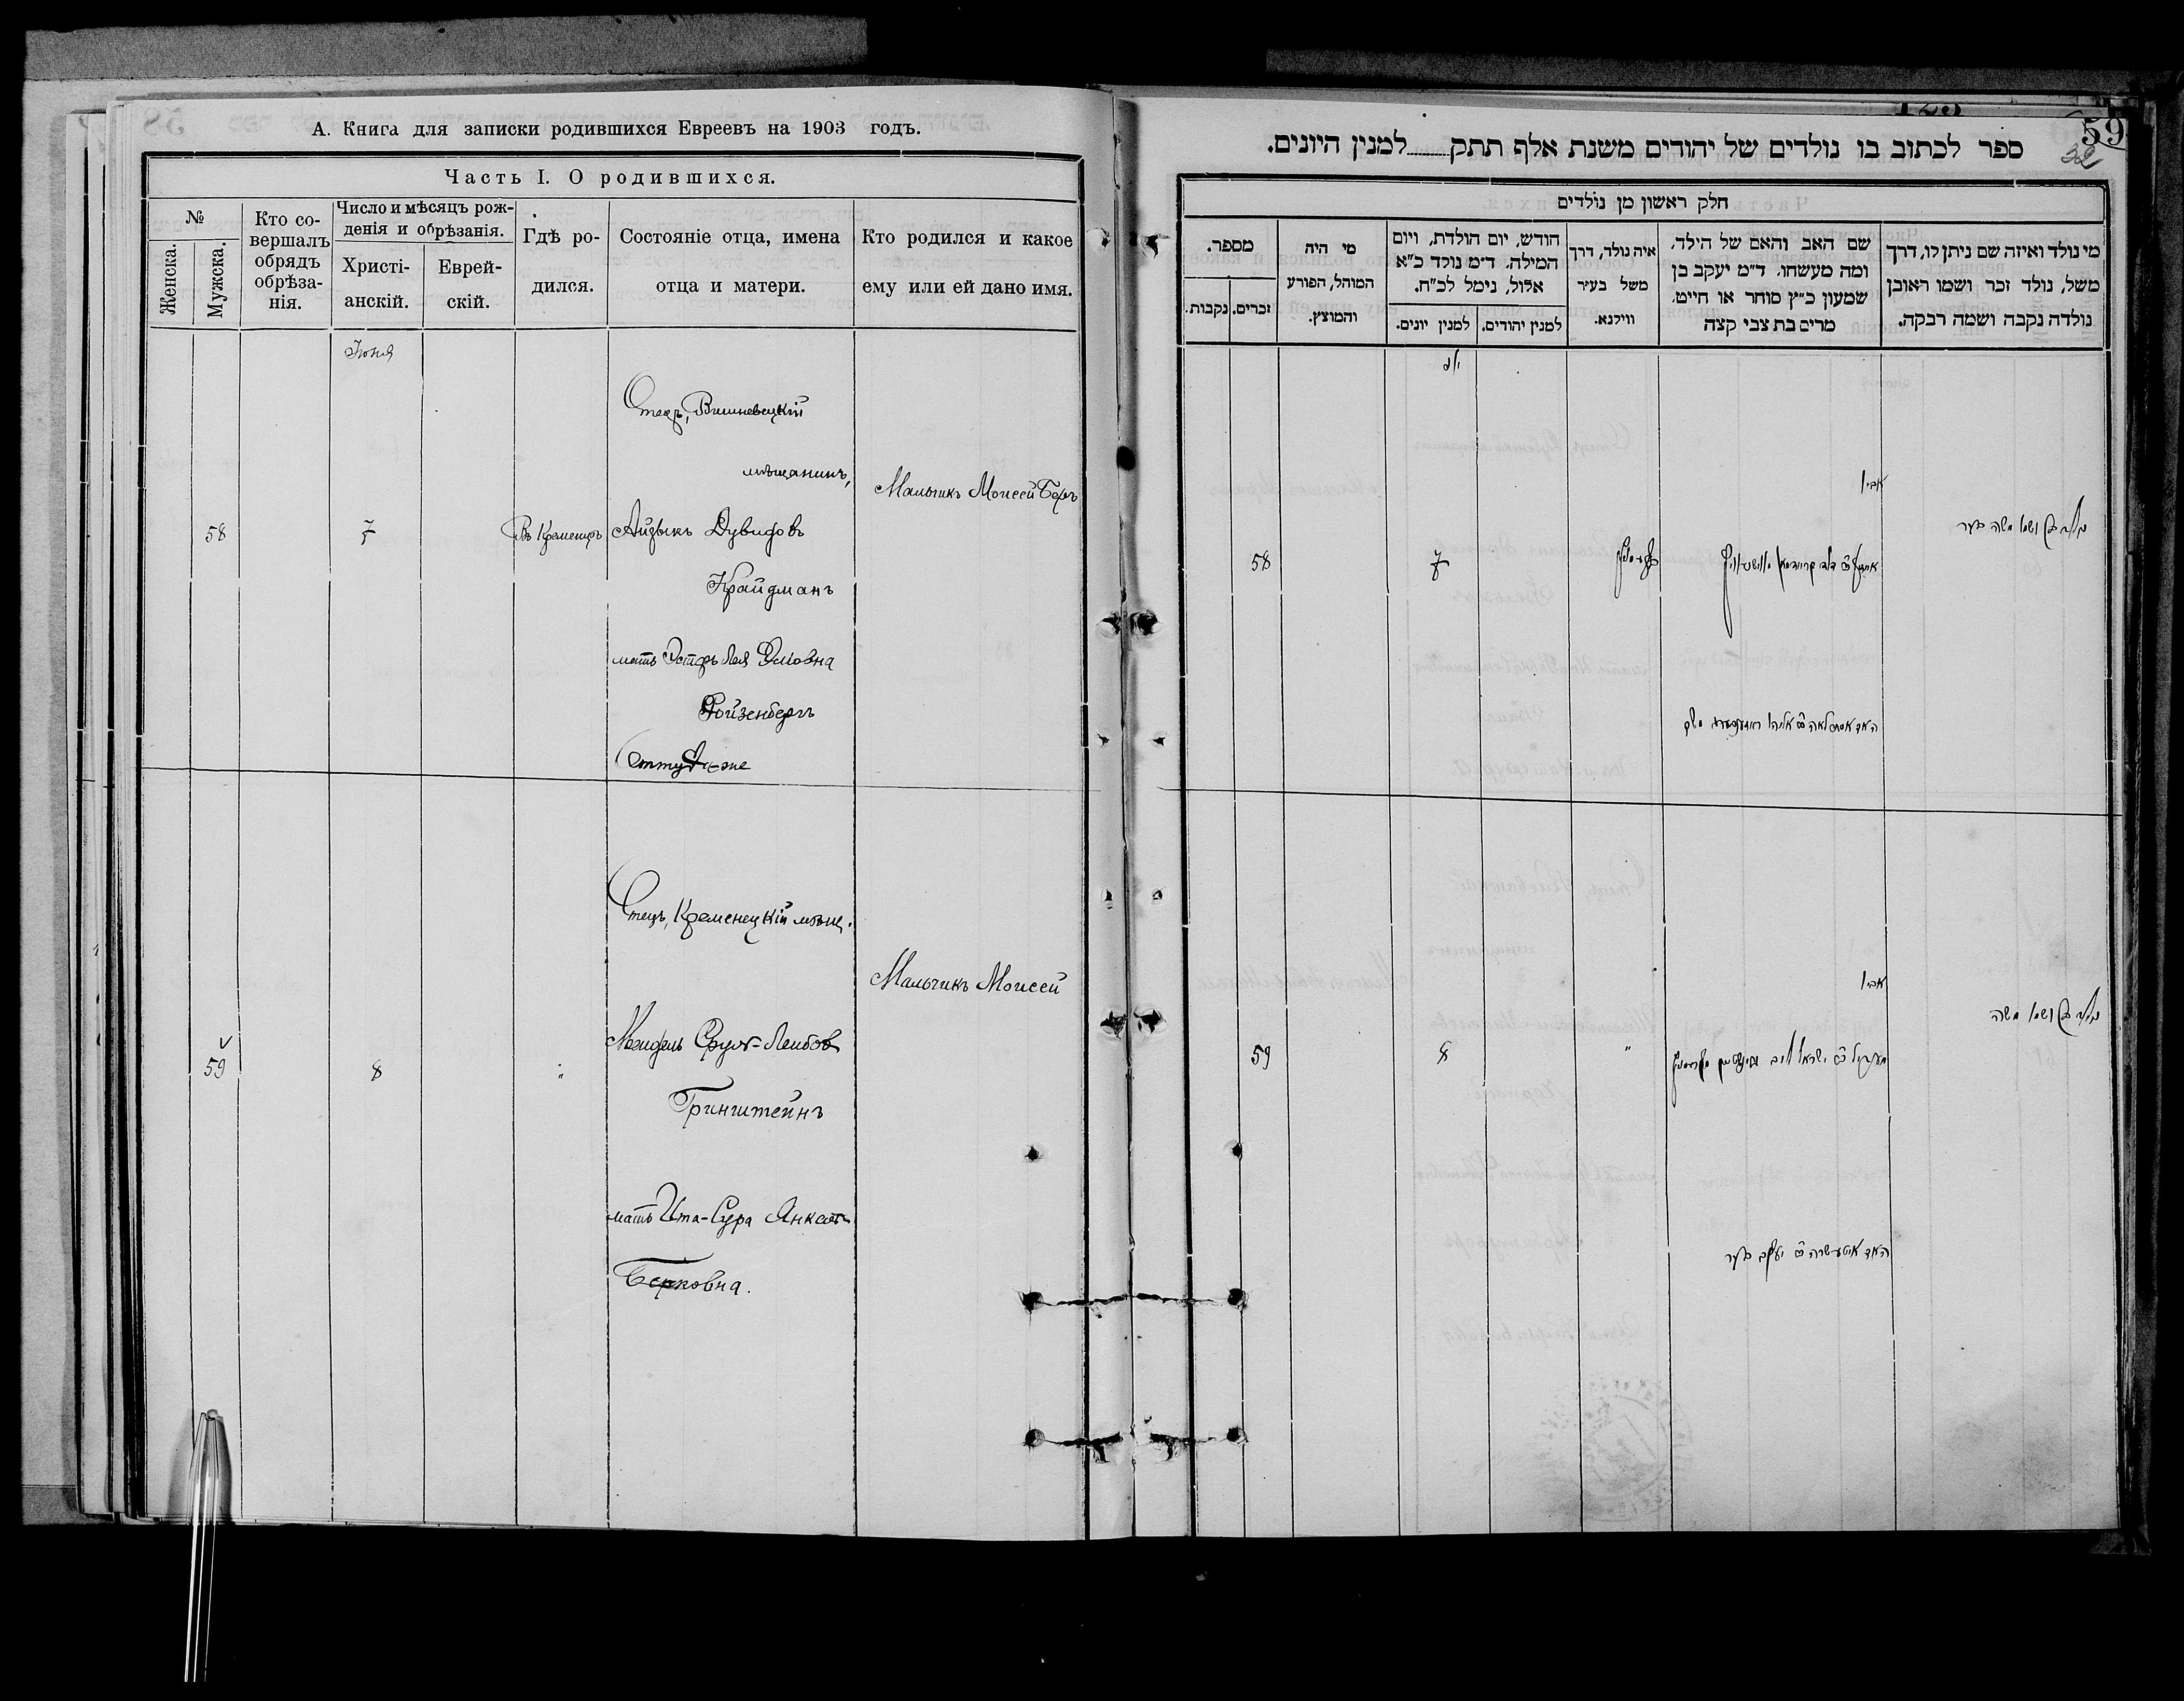 А. Книга для записки родившихся Евреевъ на 1903 годъ.
Часть I. О родившихся.
№
Женска.
Мужска.
Кто со-
вершалъ
обрядъ
обрѣза-
нія.
Число и мѣсяцъ рож-
денія и обрѣзанія.
Христі-
анскій.
Еврей-
скій.
Гдѣ ро-
дился.
Состояніе отца, имена
отца и матери.
Кто родился и какое
ему или ей дано имя.
Іюня
58
7
Въ Кременцѣ
Отецъ, Вишневецкій
мѣщанинъ,
Айзыкъ Дувидовъ
Крайдманъ
мать Эстеръ Лея Эліовна
Ройзенбергъ
Оттуда-же
Мальчикъ Моисей Беръ
59
8
"
Отецъ, Кременецкій мѣщ.
Мендель Сруль-Лейбовъ
Гринштейнъ
мать Ита-Сура Янкель
Берковна.
Мальчикъ Моисей
59
32
ספר לכתוב בו נולדים של יהודים משנת אלף תתק למנין היונים.
חלק ראשון מן נולדים
מספר.
זכרים.
נקבות.
מי היה
המוהל, הפורע
והמוצץ.
חודש, יום הולדת, ויום
המילה. ד״מ נולד כ״א
אלול, נימל לכ״ח.
למנין יונים.
למנין יהודים.
איה נולד, דרך
משל בעיר
ווילנא.
שם האב והאם של הילד,
ומה מעשהו. ד״מ יעקב בן
שמעון כ״ץ סוחר או חייט.
מרים בת צבי קצה
מי נולד ואיזה שם ניתן לו, דרך
משל, נולד זכר ושמו ראובן
נולדה נקבה ושמה רבקה.
58
7
אביו
נולד בן ושמו משה בער
59
8
"
אביו
ישראל ליב
נולד בן ושמו משה
האם איטע שרה בת יעקב בער